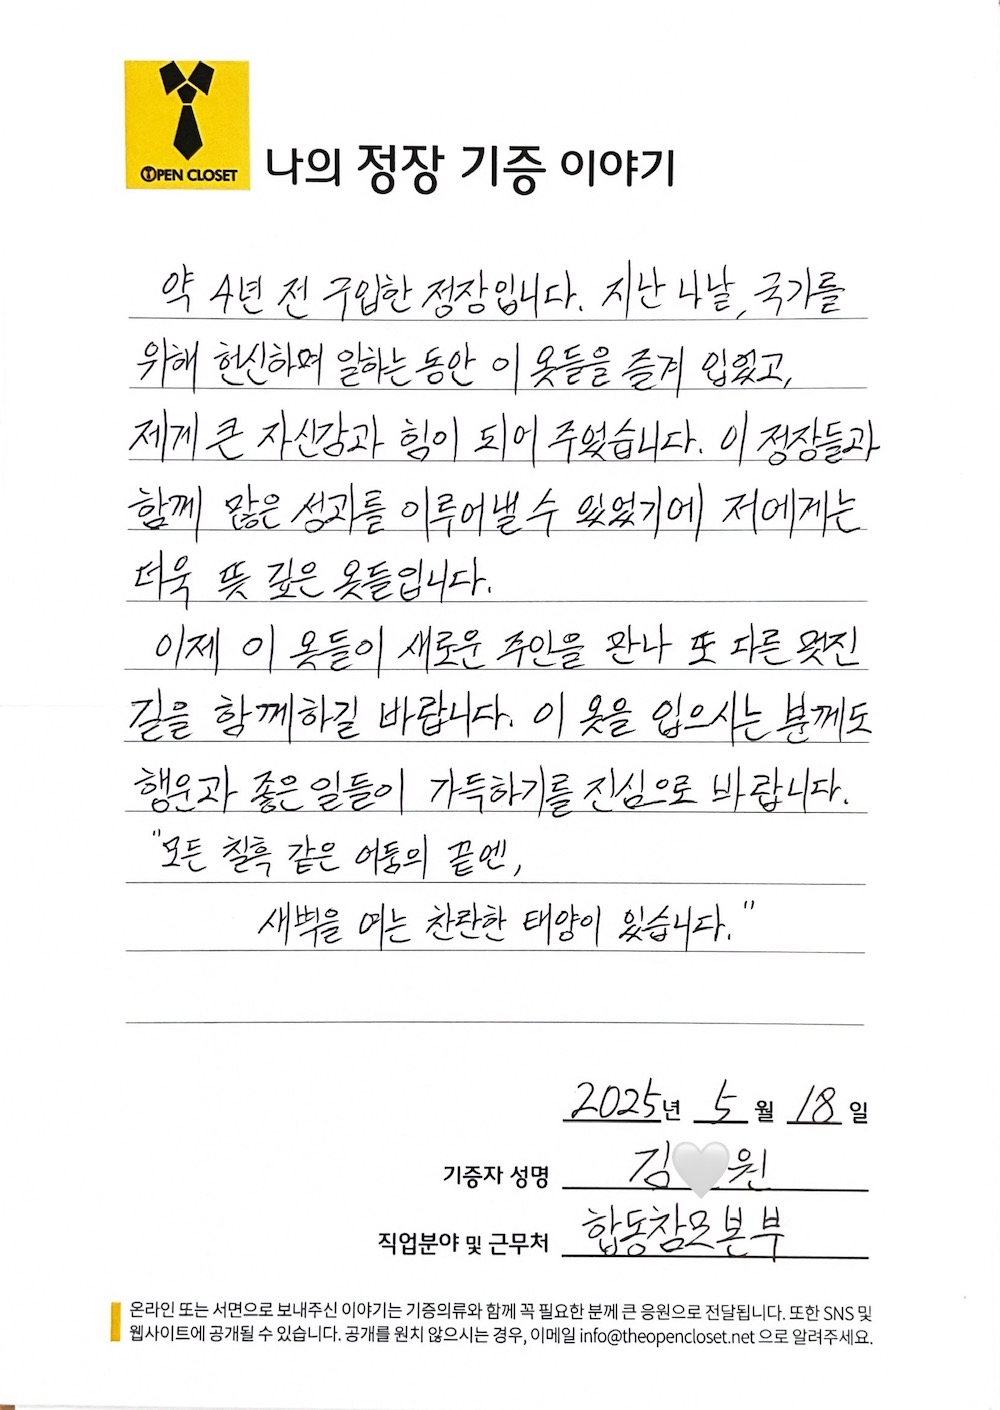 OPEN CLOSET
나의 정장 기증 이야기
약 4년 전 구입한 정장입니다. 지난 나날, 국가를
위해 헌신하며 일하는 동안 이 옷들을 즐겨 입었고,
제게 큰 자신감과 힘이 되어 주었습니다. 이 정장들과
함께 많은 성과를 이루어낼 수 있었기에 저에게는
더욱 뜻 깊은 옷들입니다.
이제 이 옷들이 새로운 주인을 만나 또 다른 멋진
길을 함께하길 바랍니다. 이 옷을 입으시는 분께도
행운과 좋은 일들이 가득하기를 진심으로 바랍니다.
"모든 칠흑 같은 어둠의 끝엔,
새벽을 여는 찬란한 태양이 있습니다."
2025년 5월 18일
기증자 성명 김 원
직업분야 및 근무처 합동참모본부
온라인 또는 서면으로 보내주신 이야기는 기증의류와 함께 꼭 필요한 분께 큰 응원으로 전달됩니다. 또한 SNS 및
웹사이트에 공개될 수 있습니다. 공개를 원치 않으시는 경우, 이메일 info@theopencloset.net 으로 알려주세요.